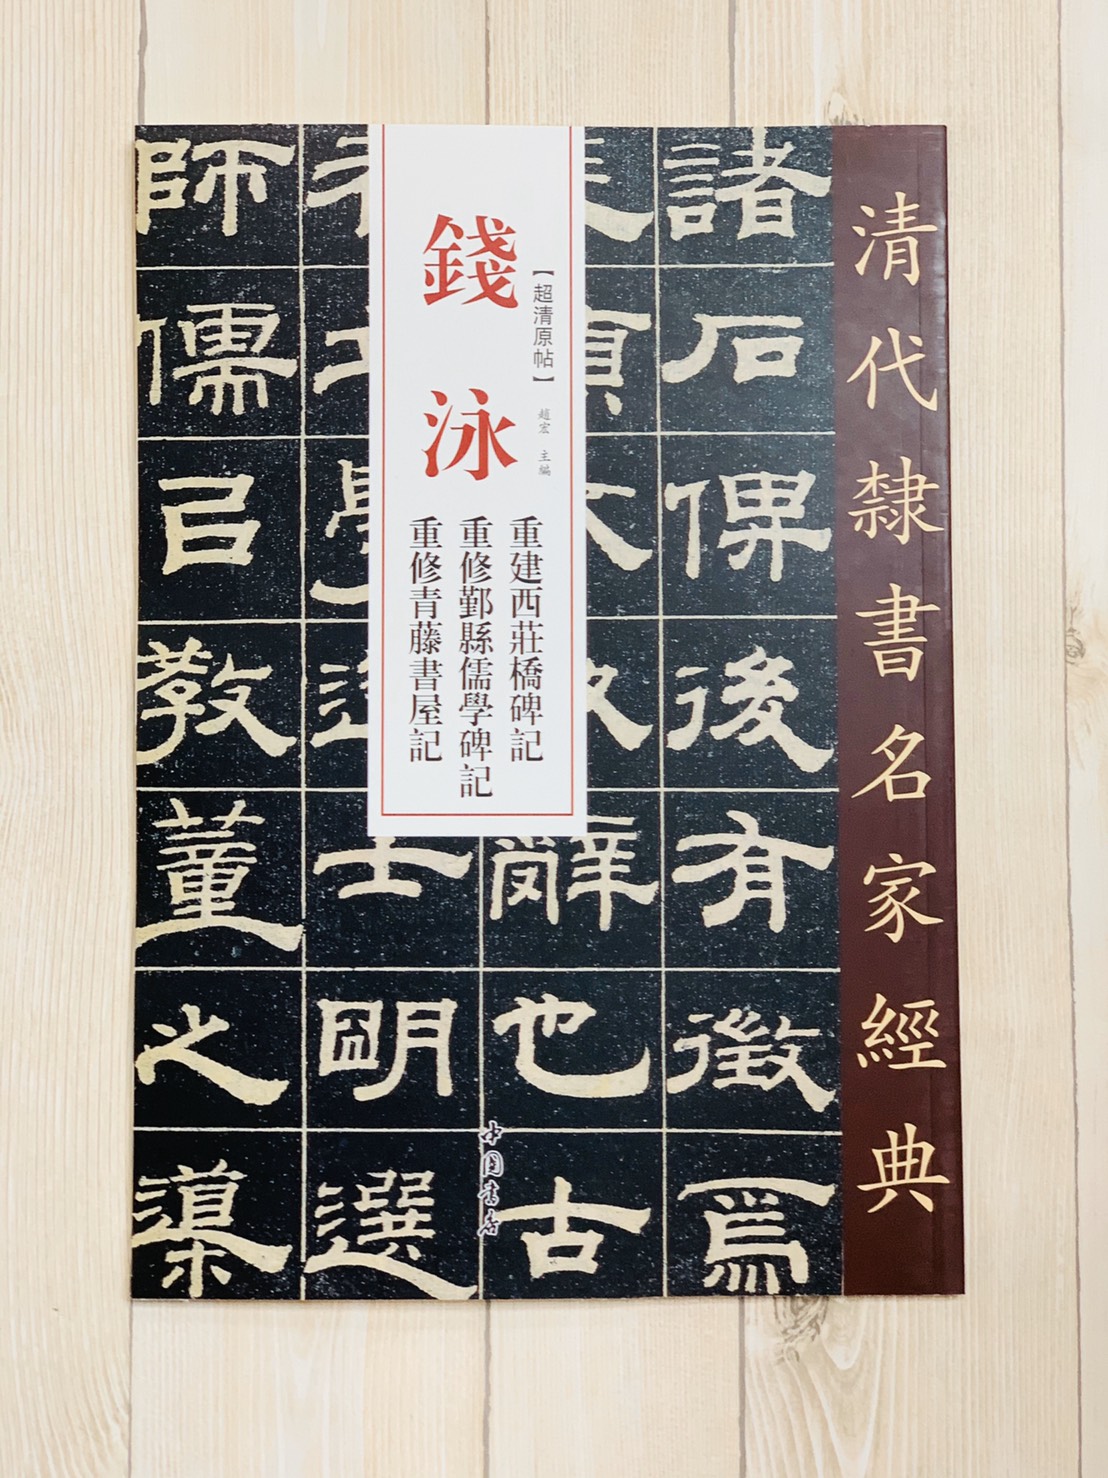 清代隸書名家經典
【超清原帖】
趙宏 主編
錢泳
重建西莊橋碑記
重修鄞縣儒學碑記
重修青藤書屋記
諸石俾後有徵焉
辭也古
士明選
師儒以教董之
中国书店